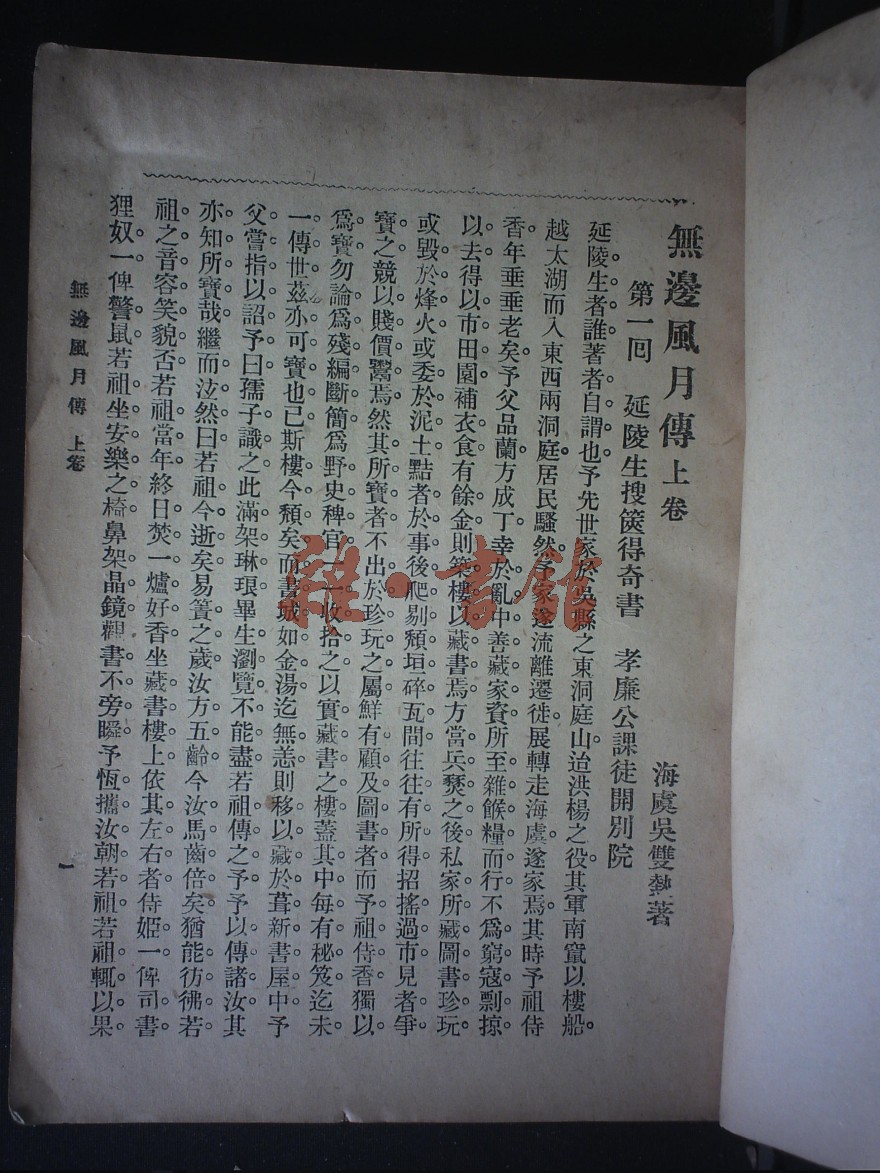 無邊風月傳上卷
海虞吳雙熱著
第一回　延陵生搜篋得奇書　孝廉公課徒開別院
延陵生者誰著者自謂也予先世家於吳縣之東洞庭山迨洪楊之役其軍南竄以樓船
越太湖而入東西兩洞庭居民騷然予家遂流離遷徙展轉走海虞遂家焉其時予祖侍
香年垂垂老矣予父品蘭方成丁幸於亂中善藏家資所至雜餱糧而行不爲窮寇剽掠
以去得以市田園補衣食有餘金則築樓以藏書焉方當兵燹之後私家所藏圖書珍玩
或毀於烽火或委於泥土黠者於事後爬剔頹垣碎瓦間往往有所得招搖過市見者爭
寶之競以賤價鬻焉然其所寶者不出於珍玩之屬鮮有顧及圖書者而予祖侍香獨以
爲寶勿論爲殘編斷簡爲野史稗官一一收拾之以實藏書之樓蓋其中每有秘笈迄未
一傳世茲亦可寶也已斯樓今頹矣而書城如金湯迄無恙則移以藏於葺新書屋中予
父嘗指以詔予曰孺子識之此滿架琳琅畢生瀏覽不能盡若祖傳之予予以傳諸汝其
亦知所寶哉繼而泫然曰若祖今逝矣易簀之歲汝方五齡今汝馬齒倍矣猶能彷彿若
祖之音容笑貌否若祖當年終日焚一爐好香坐藏書樓上依其左右者侍姬一俾司書
狸奴一俾警鼠若祖坐安樂之椅鼻架晶鏡觀書不旁瞬予恆攜汝朝若祖若祖輒以果
無邊風月傳　上卷
一
雜·書館